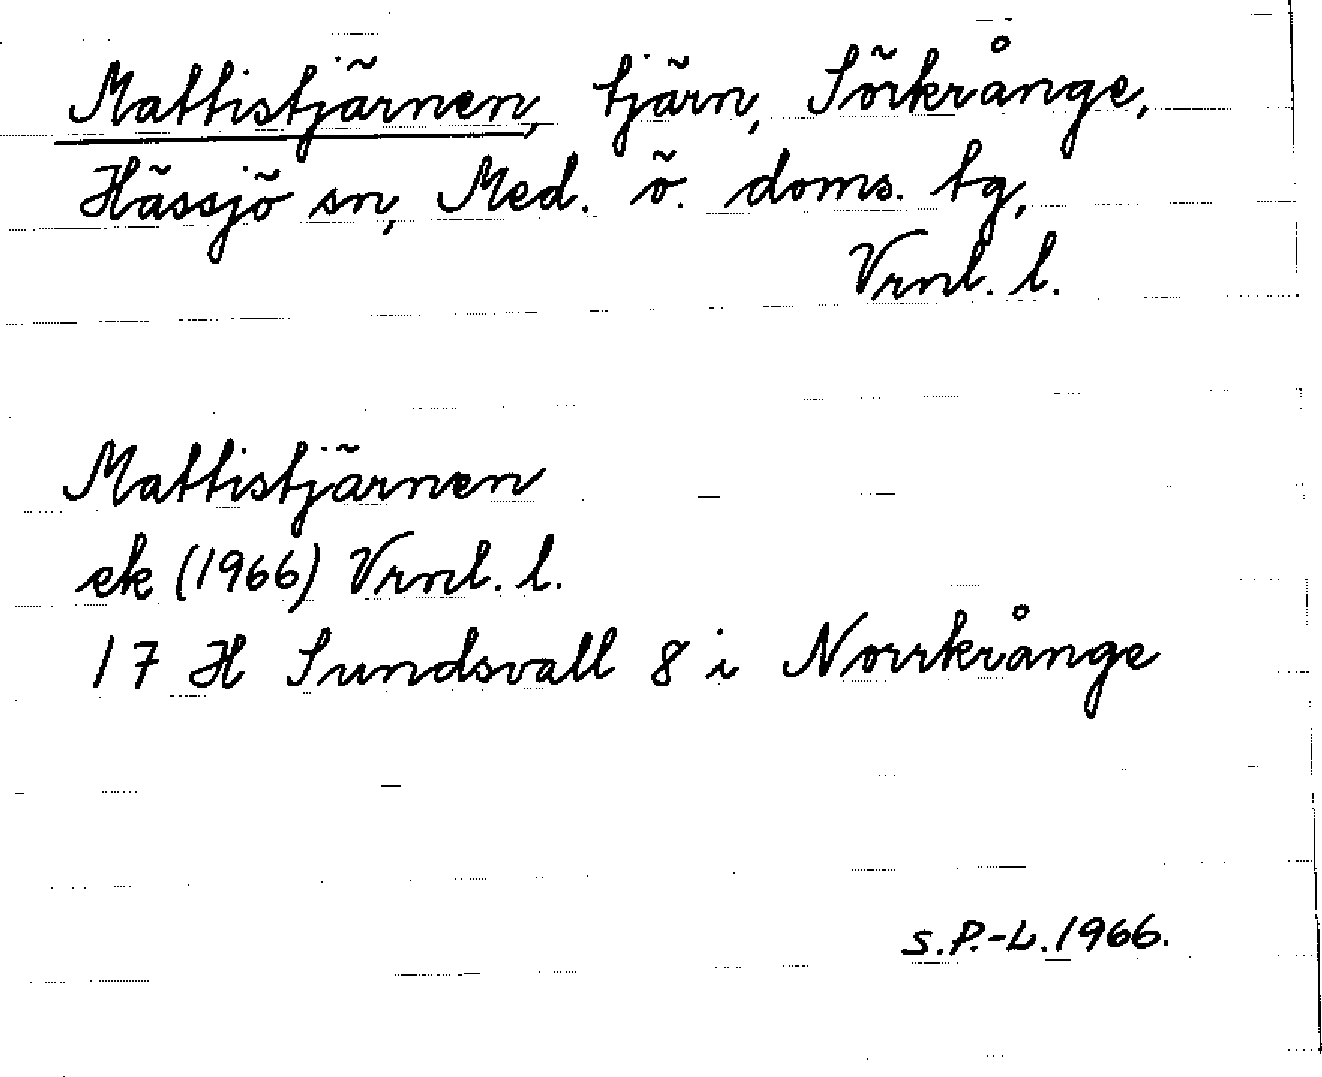 Mattistjärnen, tjärn, Sörkrånge,
Hässjö sn, Med. ö. doms. tg,
Vrnl. l.
Mattistjärnen
ek (1966) Vrnl. l.
17 H Sundsvall 8 i Norrkrånge
S.P.-L. 1966.